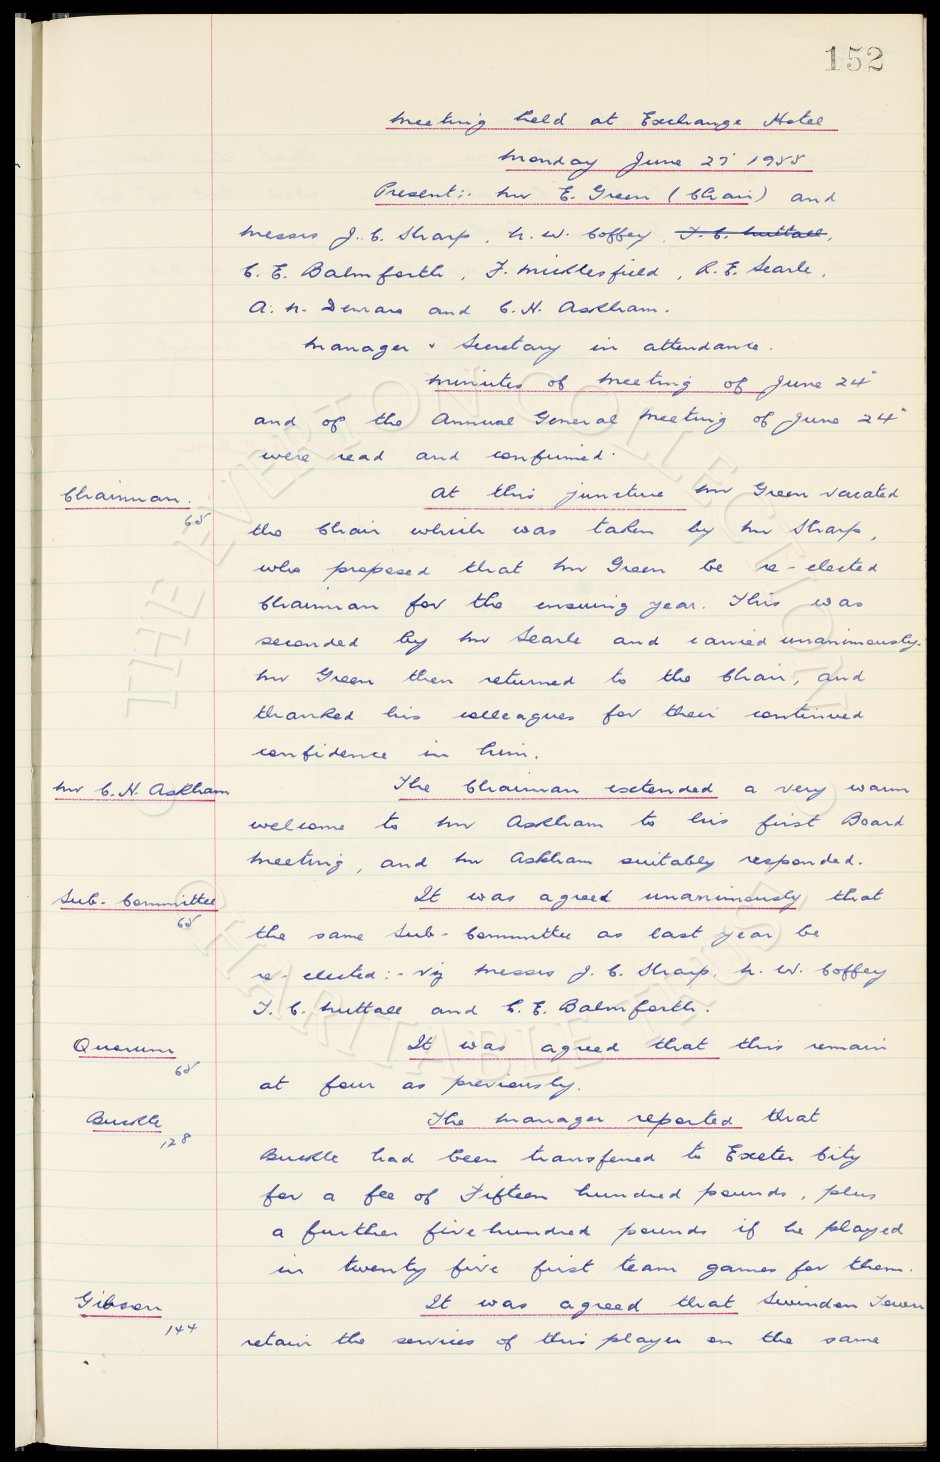 152
Meeting held at Exchange Hotel
Monday June 27" 1955
Present:- Mr E. Green (Chair) and
Messrs J. C. Sharp, N. W. Coffey, T. C. Nuttall,
C. E. Balmforth, F. Micklesfield, R. E. Searle,
A. N. Denaro and C. H. Askham.
Manager & Secretary in attendance.
Minutes of Meeting of June 24"
and of the Annual General Meeting of June 24"
were read and confirmed.
Chairman. At this juncture Mr Green vacated
65
the Chair which was taken by Mr Sharp,
who proposed that Mr Green be re-elected
Chairman for the ensuing year. This was
seconded by Mr Searle and carried unanimously.
Mr Green then returned to the Chair, and
thanked his colleagues for their continued
confidence in him.
Mr C. H. Askham The Chairman extended a very warm
welcome to Mr Askham to his first Board
Meeting, and Mr Askham suitably responded.
Sub-Committee It was agreed unanimously that
65
the same Sub-Committee as last year be
re-elected:- viz Messrs J. C. Sharp, N. W. Coffey
T. C. Nuttall and C. E. Balmforth.
Quorum It was agreed that this remain
65
at four as previously.
Buckle The Manager reported that
128
Buckle had been transferred to Exeter City
for a fee of Fifteen hundred pounds, plus
a further five hundred pounds if he played
in twenty five first team games for them.
Gibson It was agreed that Swindon Town
144
retain the services of this player on the same
THE EVERTON COLLECTION
CHARITABLE TRUST